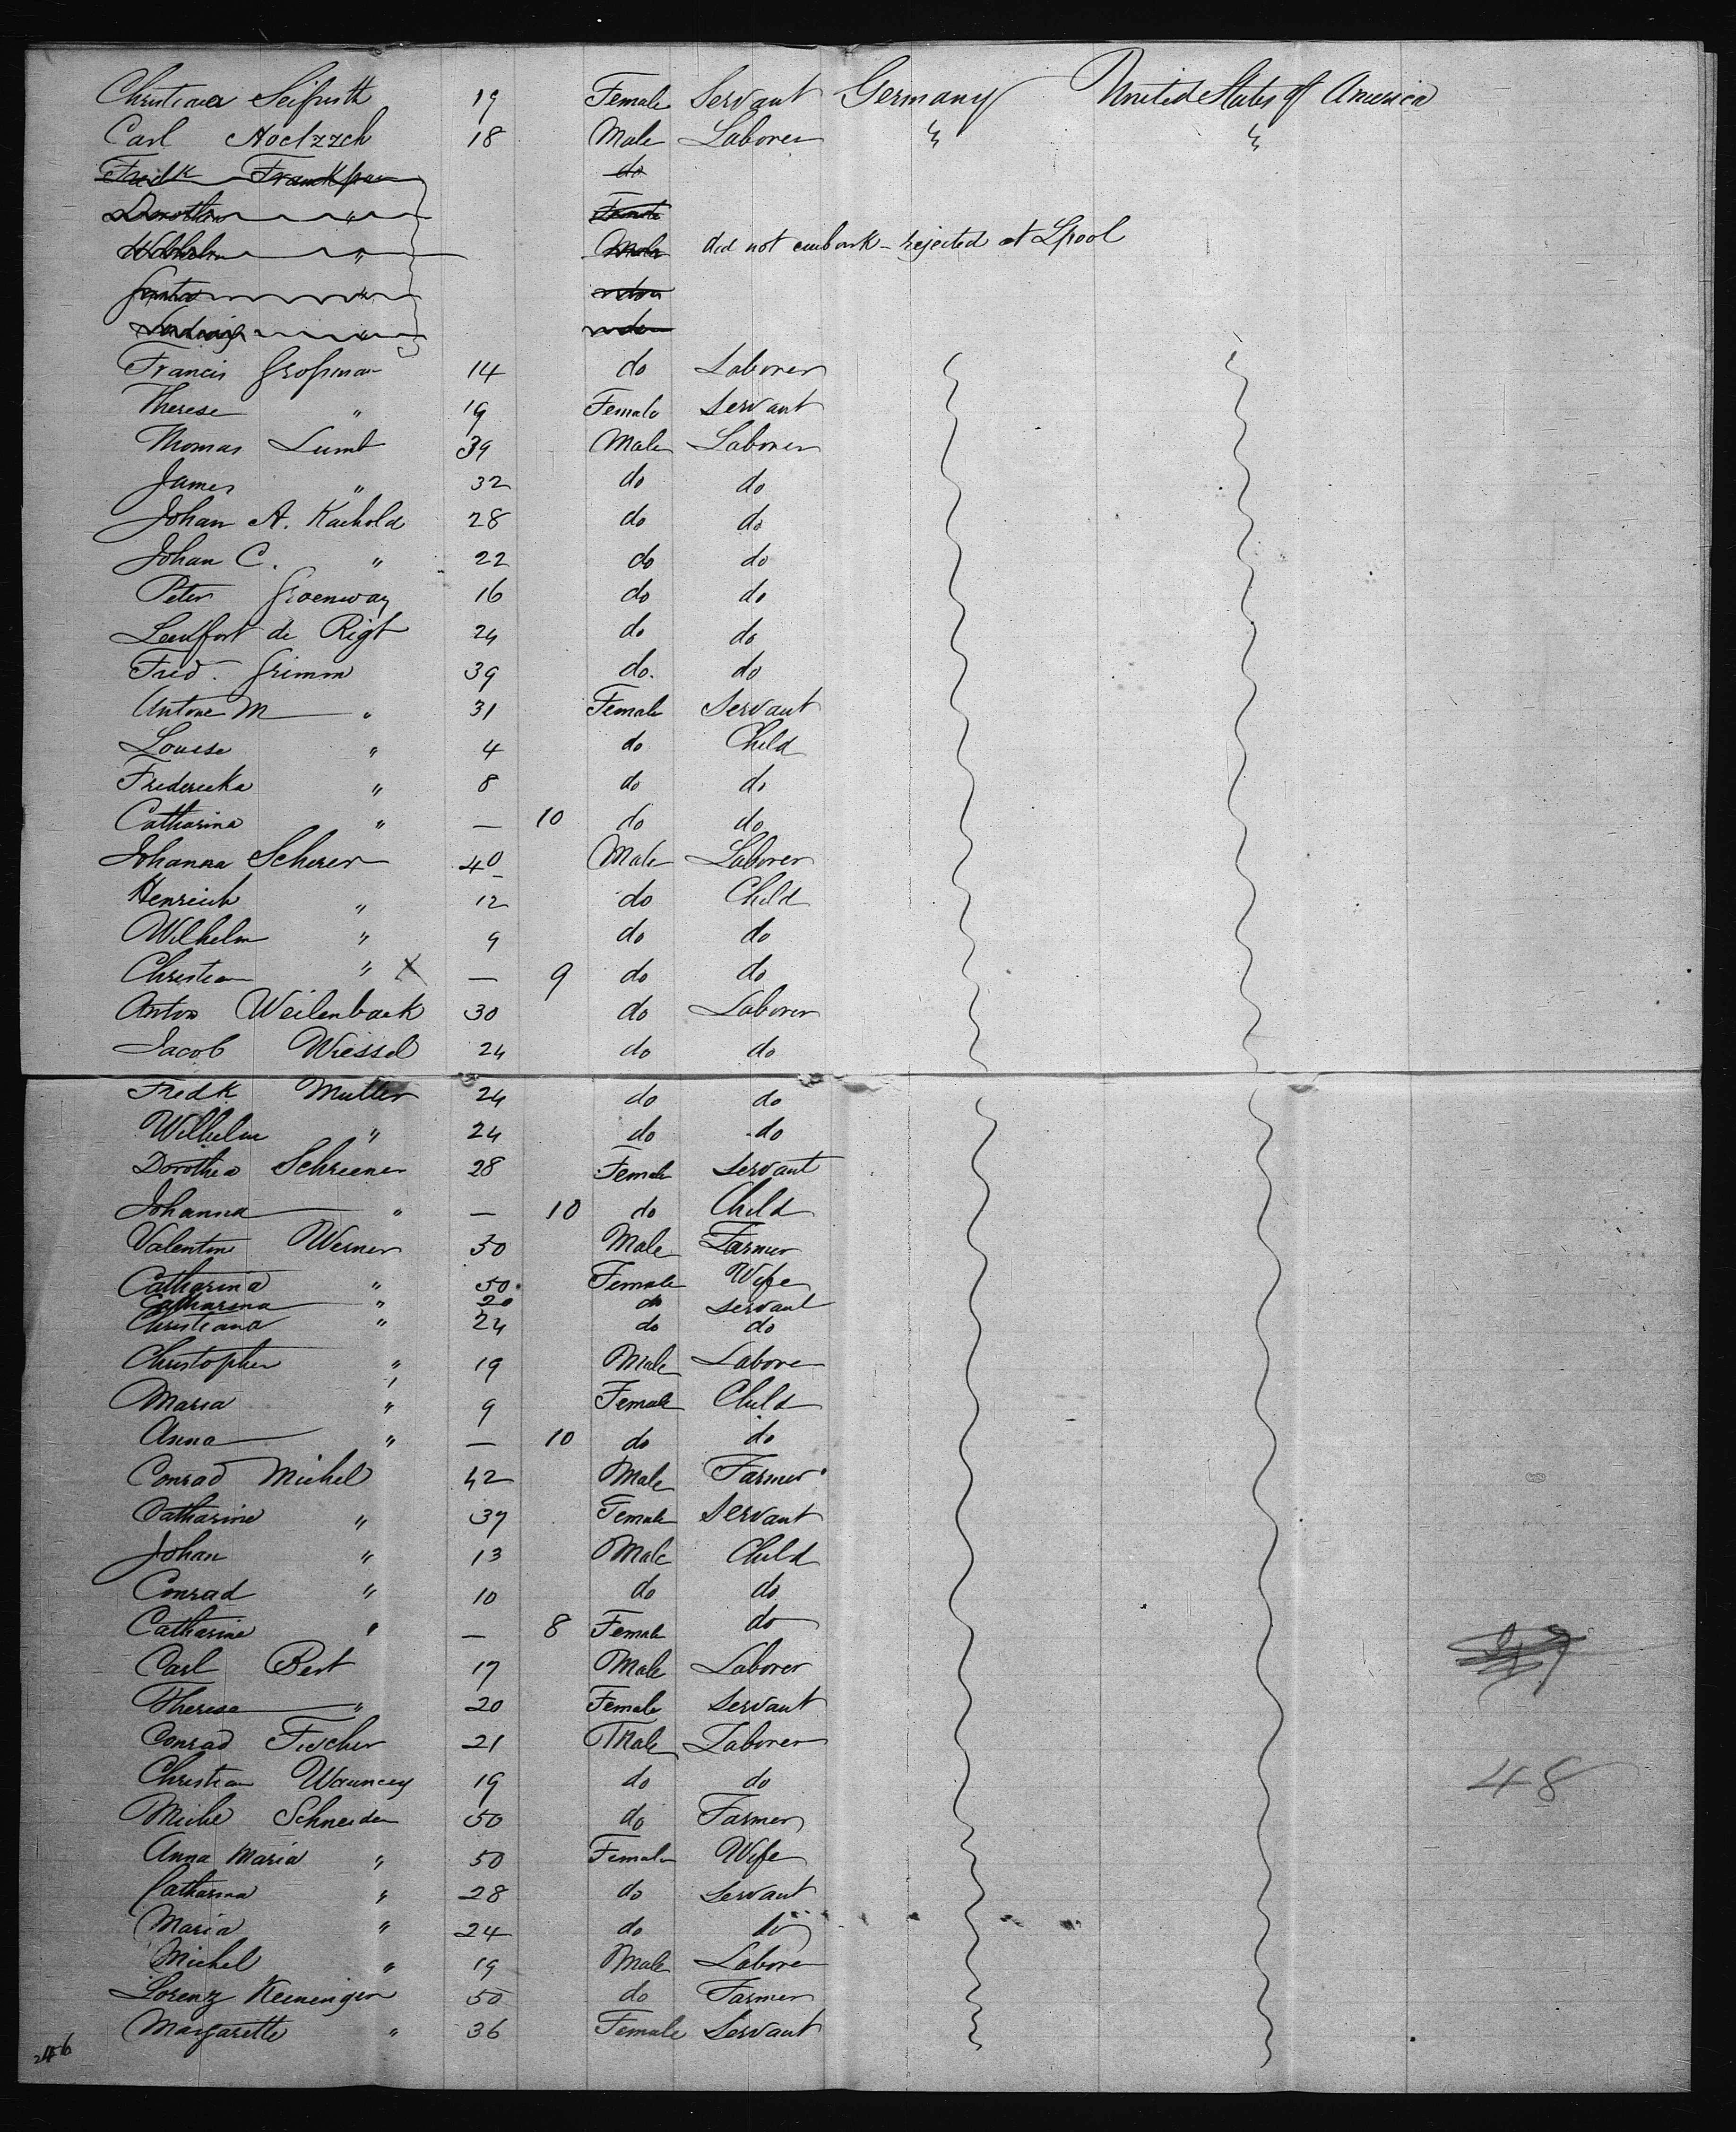 Christiana Seifurth 19 Female Servant Germany United States of America
Carl Noetzzch 18 Male Laborer " "
Fredk Frankfran do
Dorothea " Female
Wilhelm " Male did not embark - rejected at Lpool
" do
Ludwig " do
Francis Großman 14 do Laborer
Therese " 19 Female Servant
Thomas Lumb 39 Male Laborer
James " 32 do do
Johan A. Kachold 28 do do
Johan C. " 22 do do
Peter Groenway 16 do do
Leenfort de Rigt 24 do do
Fred. Grimm 39 do. do
Antone M " 31 Female Servant
Louise " 4 do Child
Fredereeka " 8 do do
Catharina " — 10 do do
Johanna Scherer 40 Male Laborer
Henreich " 12 do Child
Wilhelm " 9 do do
Christian " X — 9 do do
Anton Weilenback 30 do Laborer
Jacob Wiessel 24 do do
Fredk Muller 24 do do
Wilhelm " 24 do do
Dorothea Schreener 28 Female Servant
Johanna " — 10 do Child
Valentine Werner 50 Male Farmer
Catharina " 50 Female Wife
Catharina " 20 do Servant
Christiana " 24 do do
Christopher " 19 Male Labore
Maria " 9 Female Child
Anna " — 10 do do
Conrad Michel 42 Male Farmer
Catharine " 37 Female Servant
Johan " 13 Male Child
Conrad " 10 do do
Catharine " — 8 Female do
Carl Bert 17 Male Laborer
Therese " 20 Female Servant
Conrad Fischer 21 Male Laborer
Christian Wauncey 19 do do
48
Miche Schneider 50 do Farmer
Anna Maria " 50 Female Wife
Catharina " 28 do Servant
Maria " 24 do do
Michel " 19 Male Labore
Lorenz Keeninger 50 do Farmer
Margarette " 36 Female Servant